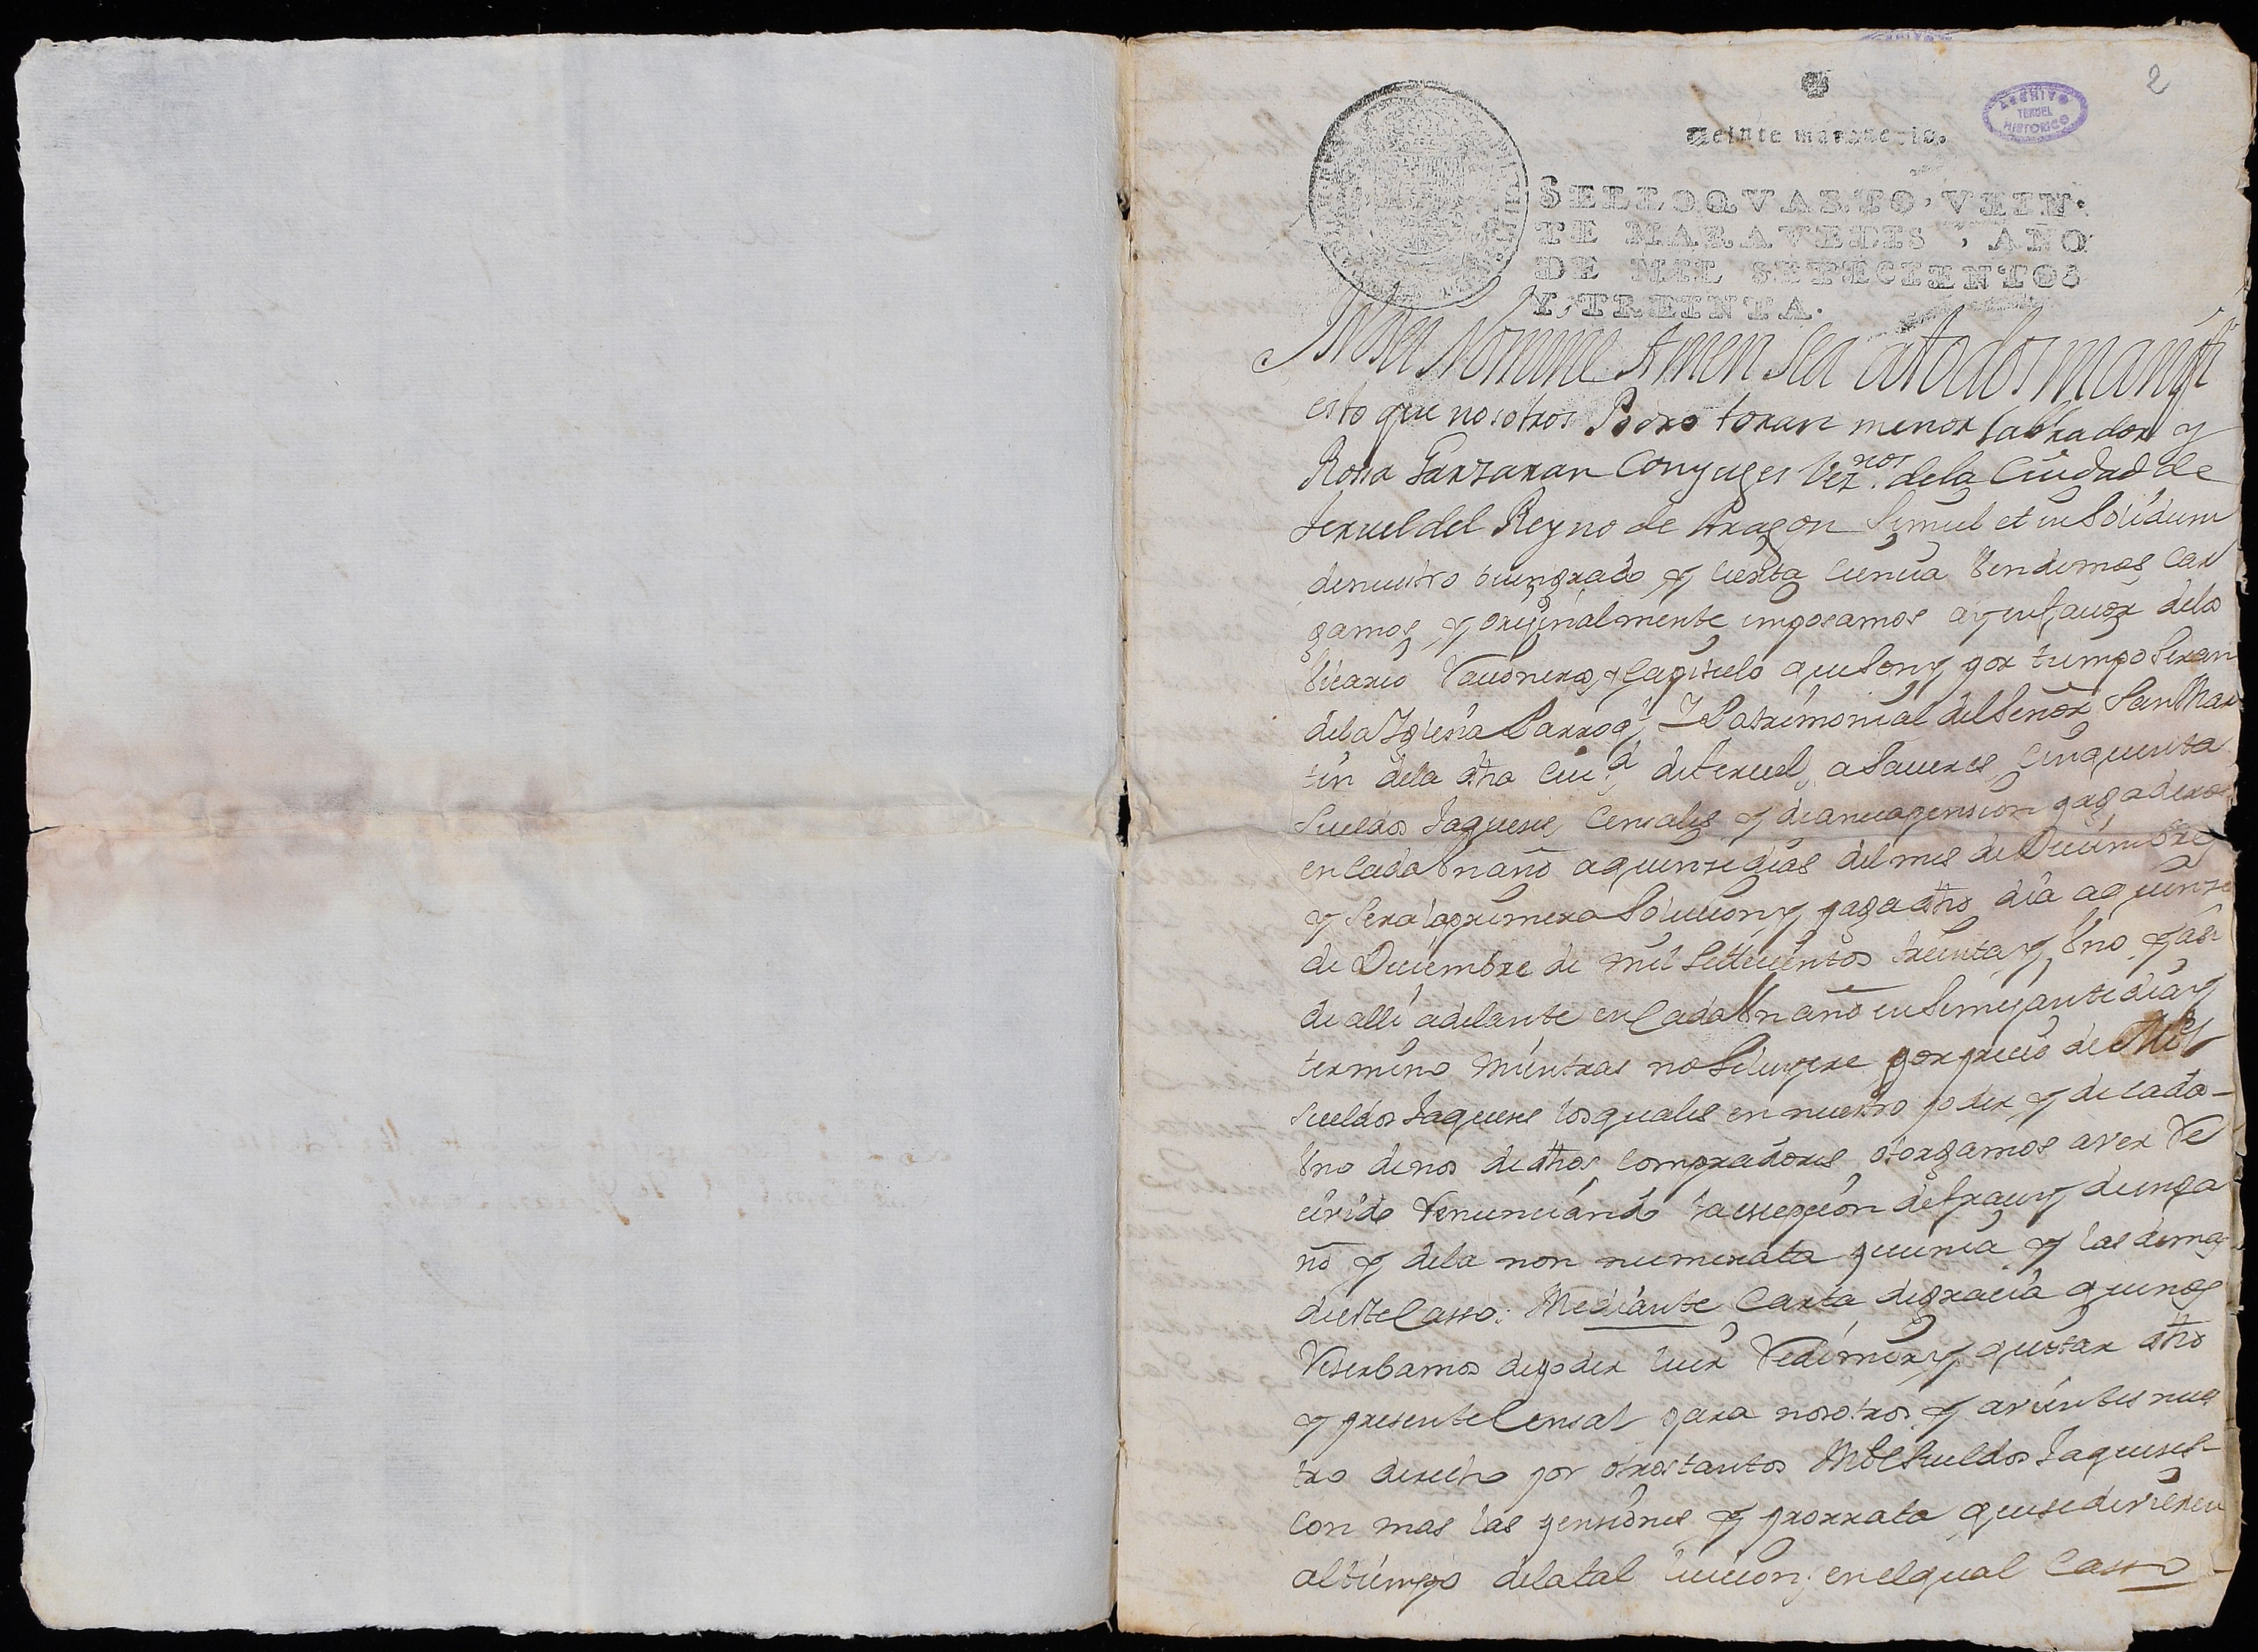 2
Veinte maravedis.
ARCHIVO
TERUEL
HISTORICO
SELLO QVARTO, VEIN-
TE MARAVEDIS, AÑO
DE MIL SETECIENTOS
Y TREINTA.
In Dei Nomine Amen sea atodos manifi
esto que nosotros Pedro toran menor labrador y
Rosa Garzaran Conyuges Vez.nos dela Ciudad de
Teruel del Reyno de Aragon Simul et in Solidum
denuestro buengrado y cierta ciencia Vendemos Car
gamos y originalmente imposamos ayenfauor delos
Vicario Racioneros y Capitulo queSon y por tiempo Seran
dela Yglesia Parroq.l y Patrimonial delSeñor SanMar
tin dela dha Ciu.d deTeruel, aSaueres, Cinquenta
Sueldos Jaqueses Censales y deanuapension pagaderos
encada Vnaño aquinze dias del mes de Deciembre
y Sera laprimera Solucion y paga dho dia aquinze
de Deciembre de mil Setecientos treinta y Vno y asi
de alli adelante en Cada Vnaño enSemejante dia y
termino mientras noSeluyere por precio de Mil
Sueldos Jaqueses los quales en nuestro poder y de cada
Vno denos de dhos compradores otorgamos aver Re
civido Renunciando la excepcion defrau y de enga
ño y dela non numerata pecunia y las demas
deeste Casso: Mediante Carta degracia quenos
Reserbamos depoder luir Redimir y quitar dho
y presente Censal para nosotros y avientes nues
tro derecho por otrostantos Mil Sueldos Jaqueses
Con mas las pensiones y prorrata quesedevieren
altiempo delatal luicion; enelqual Casso